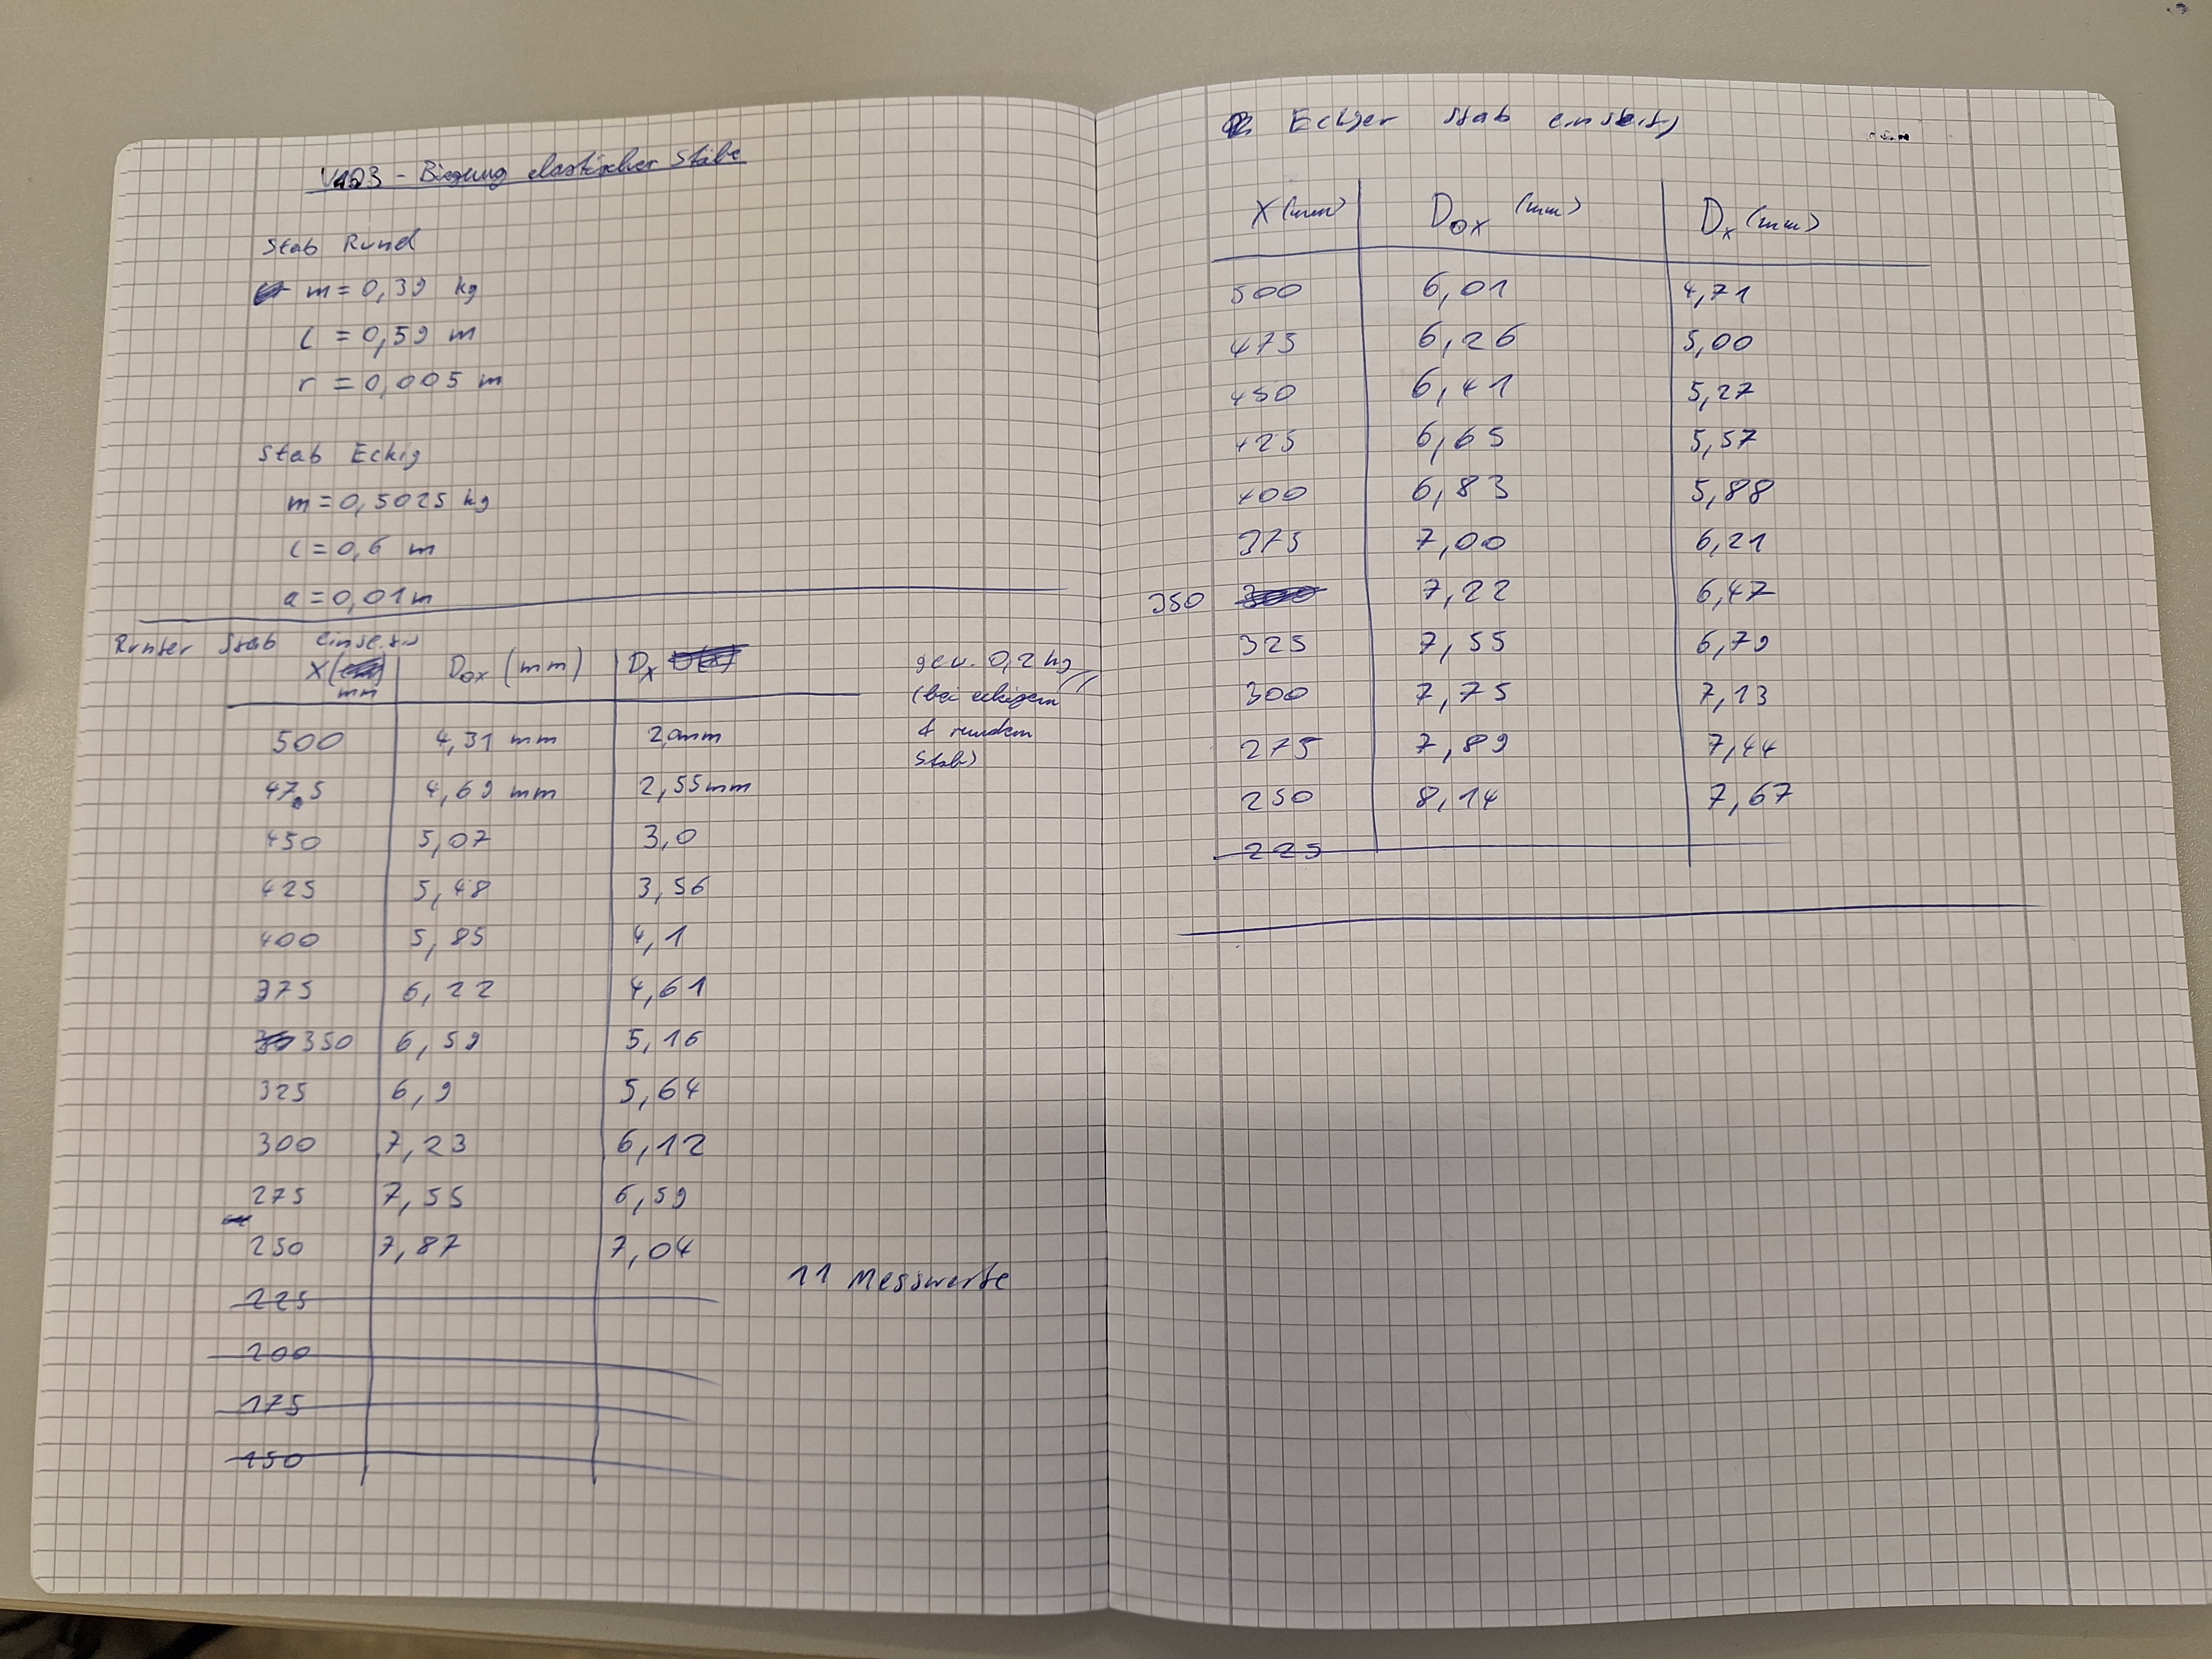 V103 - Biegung elastischer Stäbe
Stab Rund
m = 0,39 kg
l = 0,59 m
r = 0,005 m
Stab Eckig
m = 0,5025 kg
l = 0,6 m
a = 0,01 m
Runter Stab einseitig
X (mm) D0x (mm) Dx
gew. 0,2 kg
(bei eckigem
& rundem
Stab)
500 4,31 mm 2,0 mm
475 4,69 mm 2,55 mm
450 5,07 3,0
425 5,48 3,56
400 5,85 4,1
375 6,22 4,61
350 6,59 5,16
325 6,9 5,64
300 7,23 6,12
275 7,55 6,59
250 7,87 7,04
11 Messwerte
225
200
175
150
Eckiger Stab einseitig
X (mm) D0x (mm) Dx (mm)
500 6,01 4,71
475 6,26 5,00
450 6,41 5,27
425 6,65 5,57
400 6,83 5,88
375 7,00 6,21
350 300 7,22 6,47
325 7,55 6,79
300 7,75 7,13
275 7,89 7,44
250 8,14 7,67
225